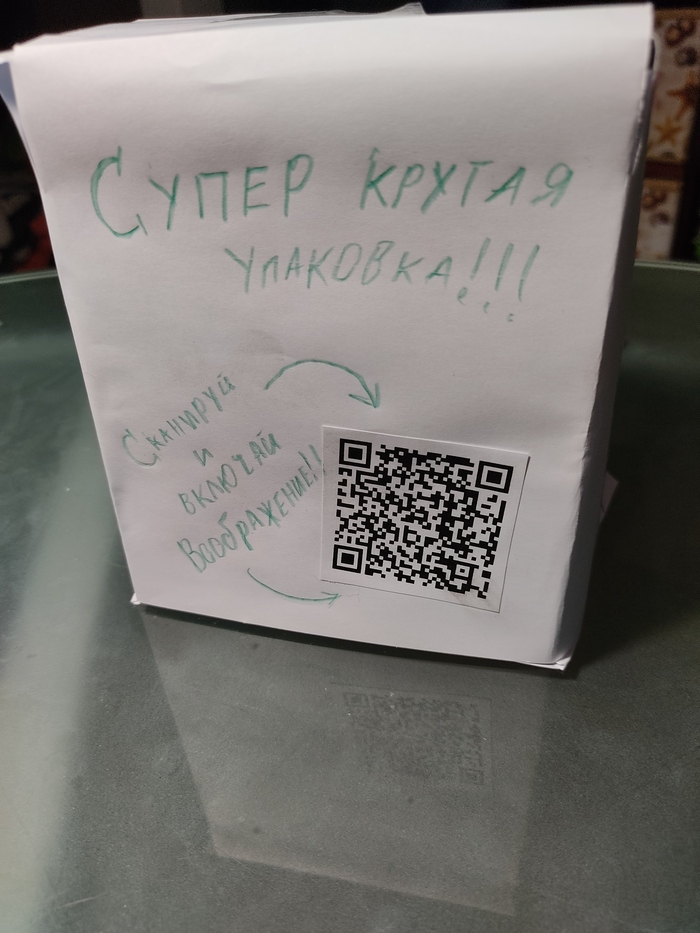 Супер крутая
упаковка!!!
Сканируй
и
включай
Воображение!!